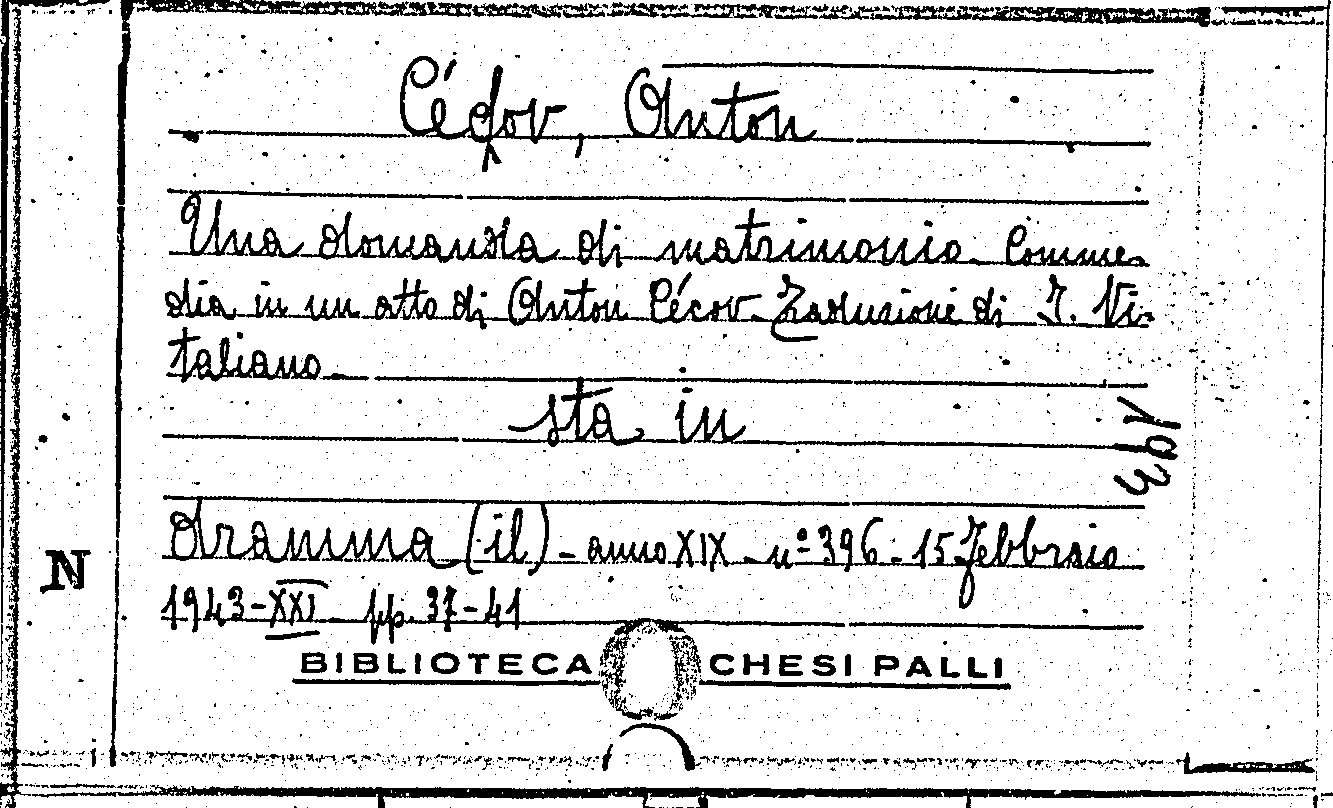 Céqov, Anton
Una domanda di matrimonio. Comme-
dia in un atto di Anton Cécov. Traduzione di I. Vi-
taliano.
sta in
193
dramma (il) - anno XIX - n° 396 - 15 febbraio
N
1943-XXI pp. 37-41
BIBLIOTECA CHESI PALLI